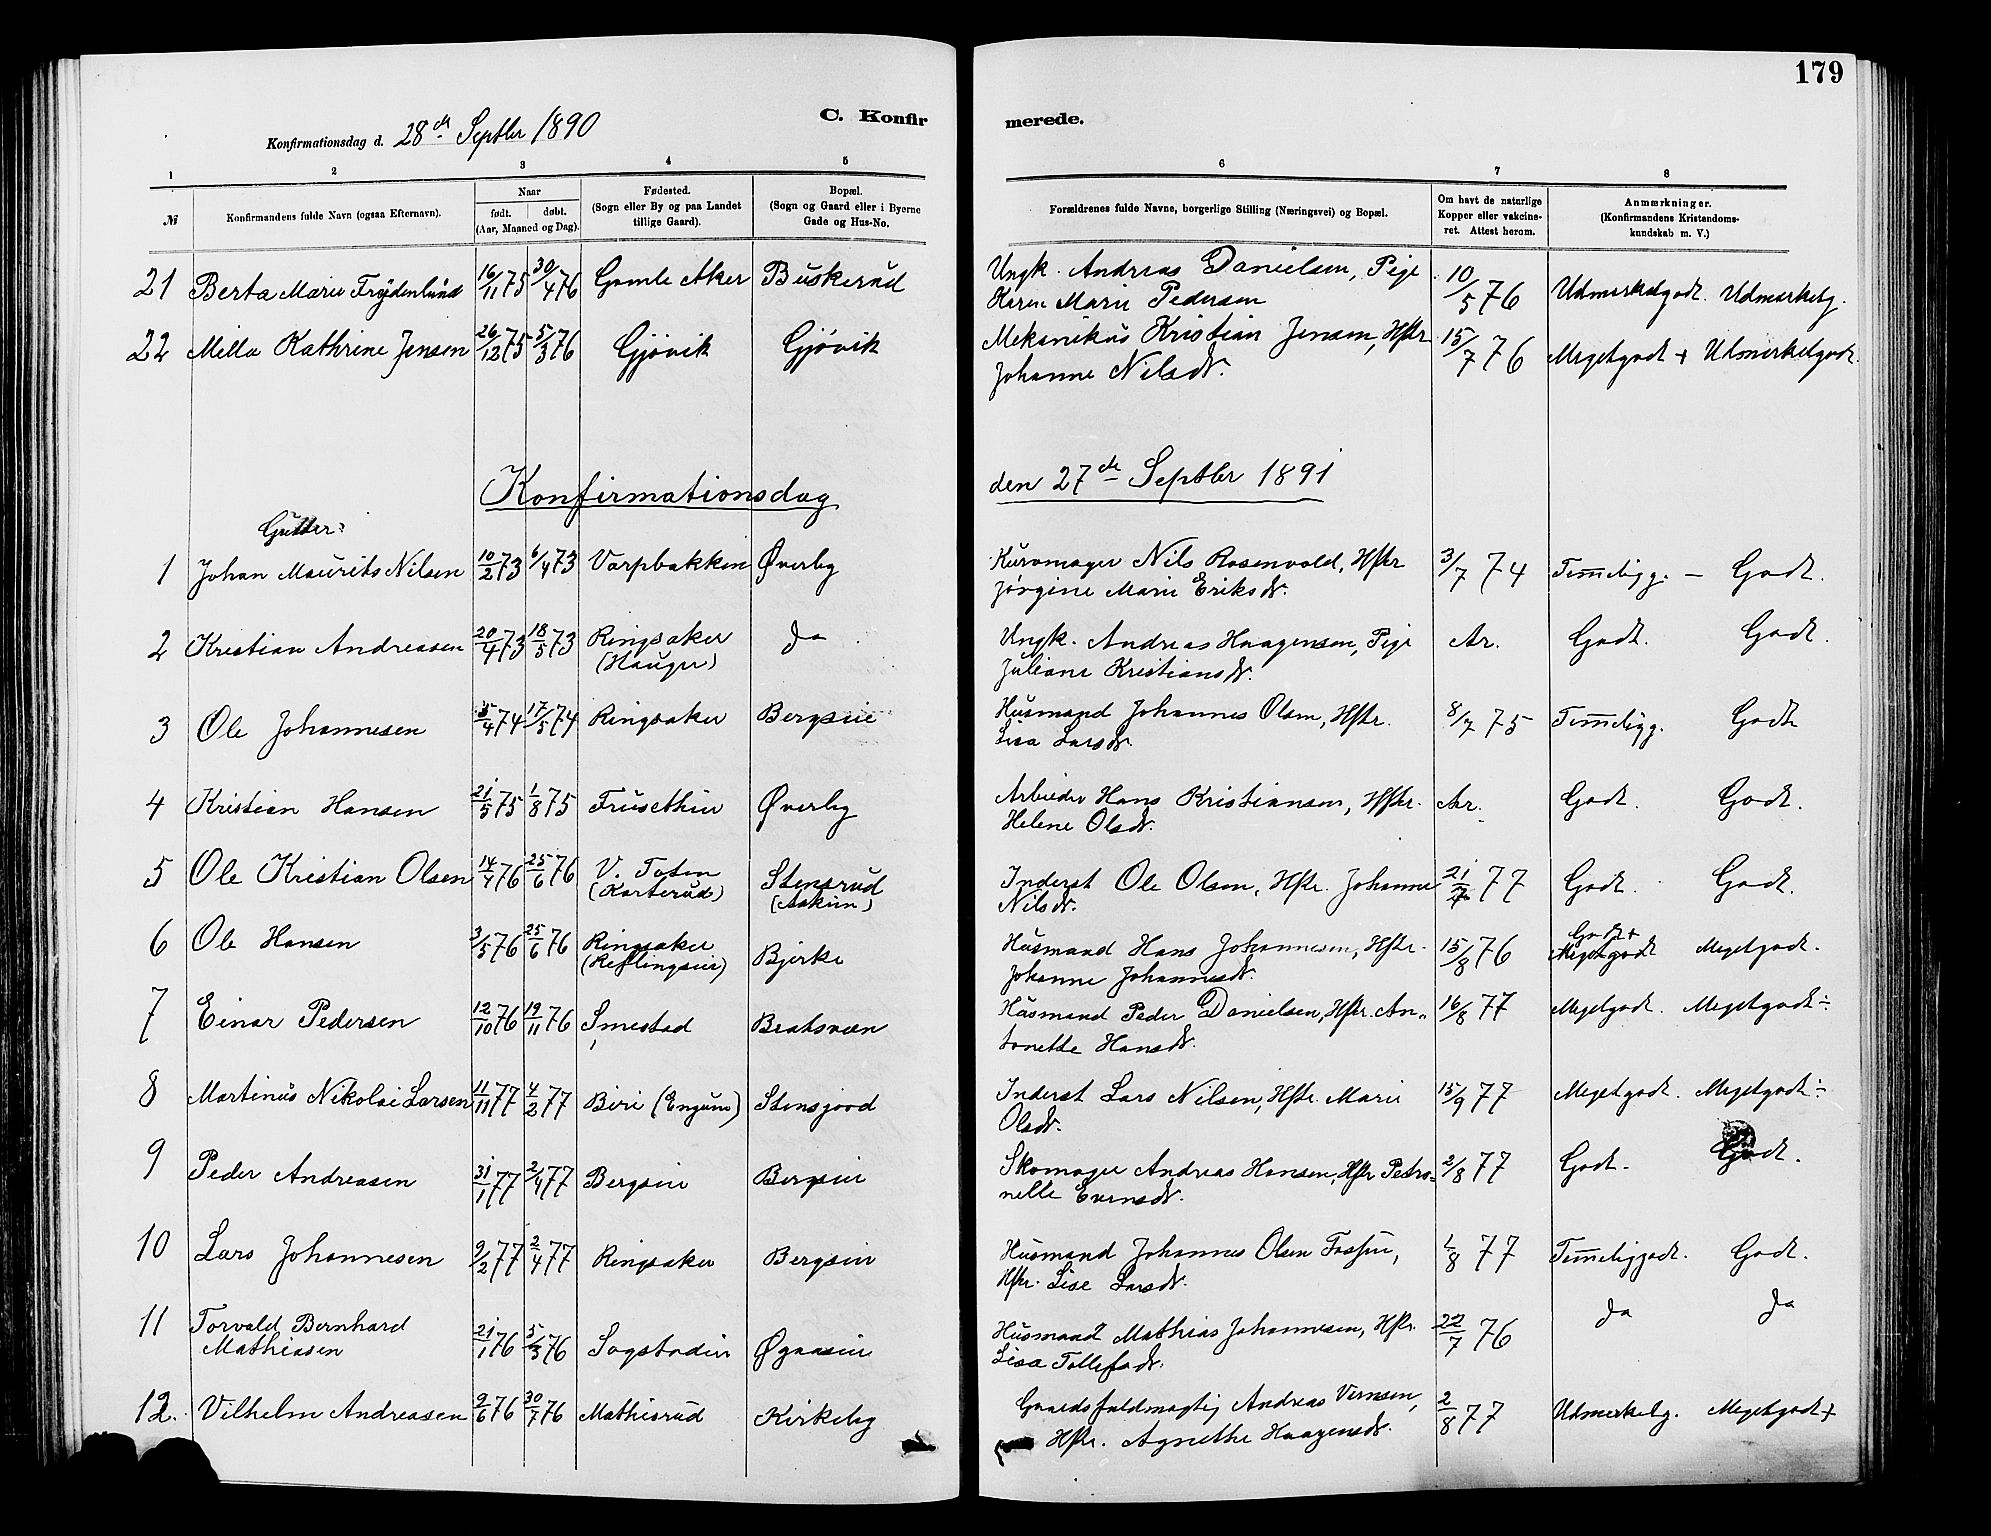 179
C. Konfir
merede.
Konfirmationsdag d. 28de Septbr 1890
1 2 3 4 5 6 7 8
№ Konfirmandens fulde Navn (ogsaa Efternavn). Naar født. døbt. (Aar, Maaned og Dag). Fødested. (Sogn eller By og paa Landet tillige Gaard). Bopæl. (Sogn og Gaard eller i Byerne Gade og Hus-No. Forældrenes fulde Navne, borgerlige Stilling (Næringsvei) og Bopæl. Om havt de naturlige Kopper eller vakcineret. Attest herom. Anmærkninger. (Konfirmandens Kristendomskundskab m. V.)
21 Berta Marie Frydenlund 16/11 75 30/4 76 Gamle Aker Buskerud Ungk. Andreas Danielsen, Pige 10/5 76 Udmerketgodt. Udmerketg.
Karen Marie Pedersen
22 Milla Kathrine Jensen 26/12 75 5/3 76 Gjøvik Gjøvik Mekanikus Kristian Jensen, Hstr 15/7 76 Megetgodt + Udmerketgodt.
Johanne Nilsdr.
Konfirmationsdag den 27de Septbr 1891
Gutter:
1 Johan Maurits Nilsen 10/2 73 6/4 73 Varpbakken Øverby Kurvmager Nils Rosenvold, Hstr 3/7 74 Temeligg. — Godt.
Jørgine Marie Eriksdr.
2 Kristian Andreasen 20/4 73 18/5 73 Ringsaker Do Ungk. Andreas Haagensen, Pige Ar. Godt. Godt.
(Hauger) Juliane Kristiansdr.
3 Ole Johannesen 5/4 74 17/5 74 Ringsaker Bergseie Husmand Johannes Olsen, Hstr. 8/7 75 Temeligg. Godt
Lisa Larsdr.
4 Kristian Hansen 21/5 75 1/8 75 Frusethie Øverby Arbeider Hans Kristiansen, Hstr. Ar. Godt. Godt.
Helene Olsdr.
5 Ole Kristian Olsen 14/4 76 25/6 76 V. Toten Stensrud Inderst Ole Olsen, Hstr. Johanne 21/7 77 Godt. Godt.
(Karterud) (Askim) Nilsdr.
6 Ole Hansen 3/5 76 25/6 76 Ringsaker Bjerke Husmand Hans Johannesen, Hstr. 15/8 76 Godt + Megetgodt Megetgodt.
(Reflingseie) Johanne Johannesdr.
7 Einar Pedersen 12/10 76 19/11 76 Smestad Bratsveen Husmand Peder Danielsen, Hstr. An„ 16/8 77 Megetgodt. Megetgodt ÷
tonette Hansdr.
8 Martinus Nikolai Larsen 11/11 77 4/2 77 Biri (Engum) Stensjord Inderst Lars Nilsen, Hstr. Marie 15/9 77 Megetgodt. Megetgodt ÷
Olsdr.
9 Peder Andreasen 31/1 77 2/4 77 Bergseie Bergseie Skomager Andreas Hansen, Hstr Petro= 2/8 77 Godt. Godt.
nelle Evensdr.
10 Lars Johannesen 9/2 77 2/4 77 Ringsaker Bergseie Husmand Johannes Olsen, 1/8 77 Temeliggodt. Godt.
Hstr. Lise Larsdr.
11 Torvald Bernhard 21/1 76 5/3 76 Sogstadeie Øgaaseie Husmand Mathias Johannesen, Hstr. 22/7 76 Do Do
Mathiasen Lisa Tollefsdr.
12. Vilhelm Andreasen 9/6 76 30/7 76 Mathisrud Kirkeby Gaardsfuldmægtig Andreas Vernsen, 2/8 77 Udmerketg. Megetgodt +
Hstr. Agnethe Haagensdr.